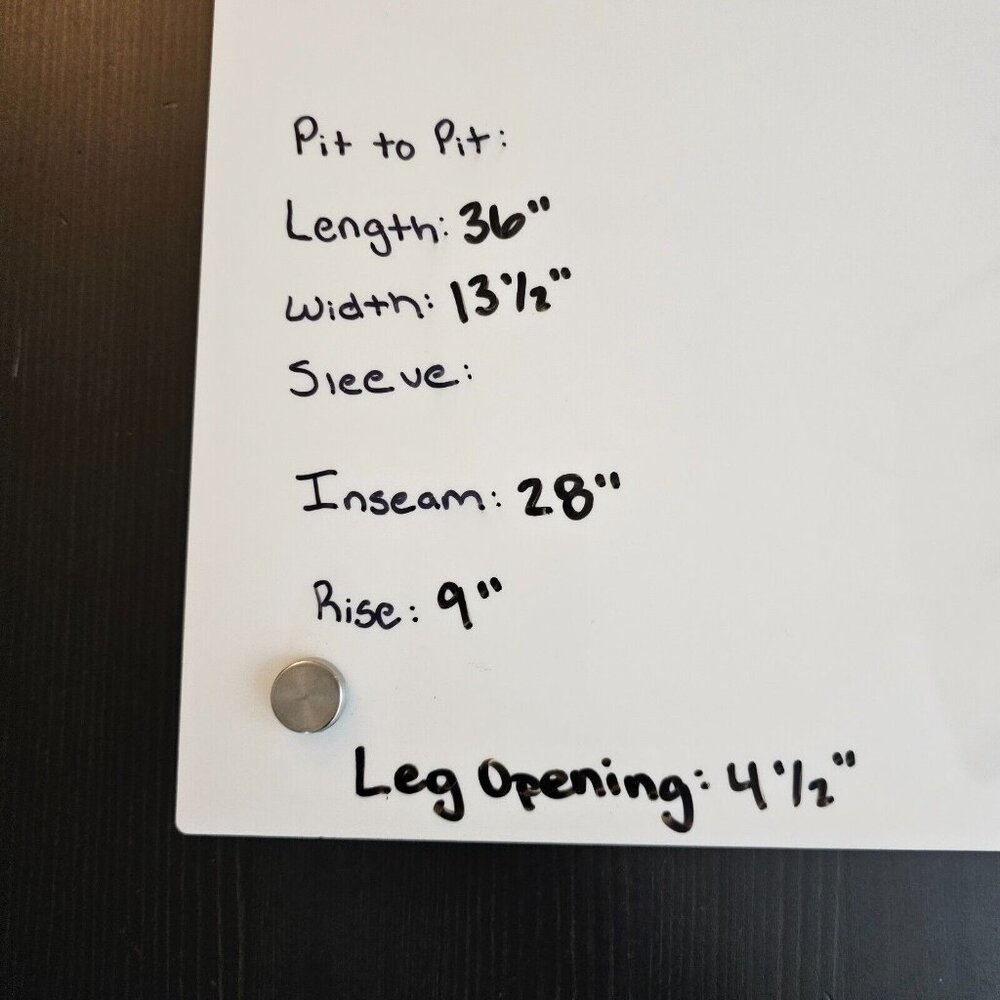 Pit to Pit:
Length: 36"
Width: 13 1/2"
Sleeve:
Inseam: 28"
Rise: 9"
Leg Opening: 4 1/2"